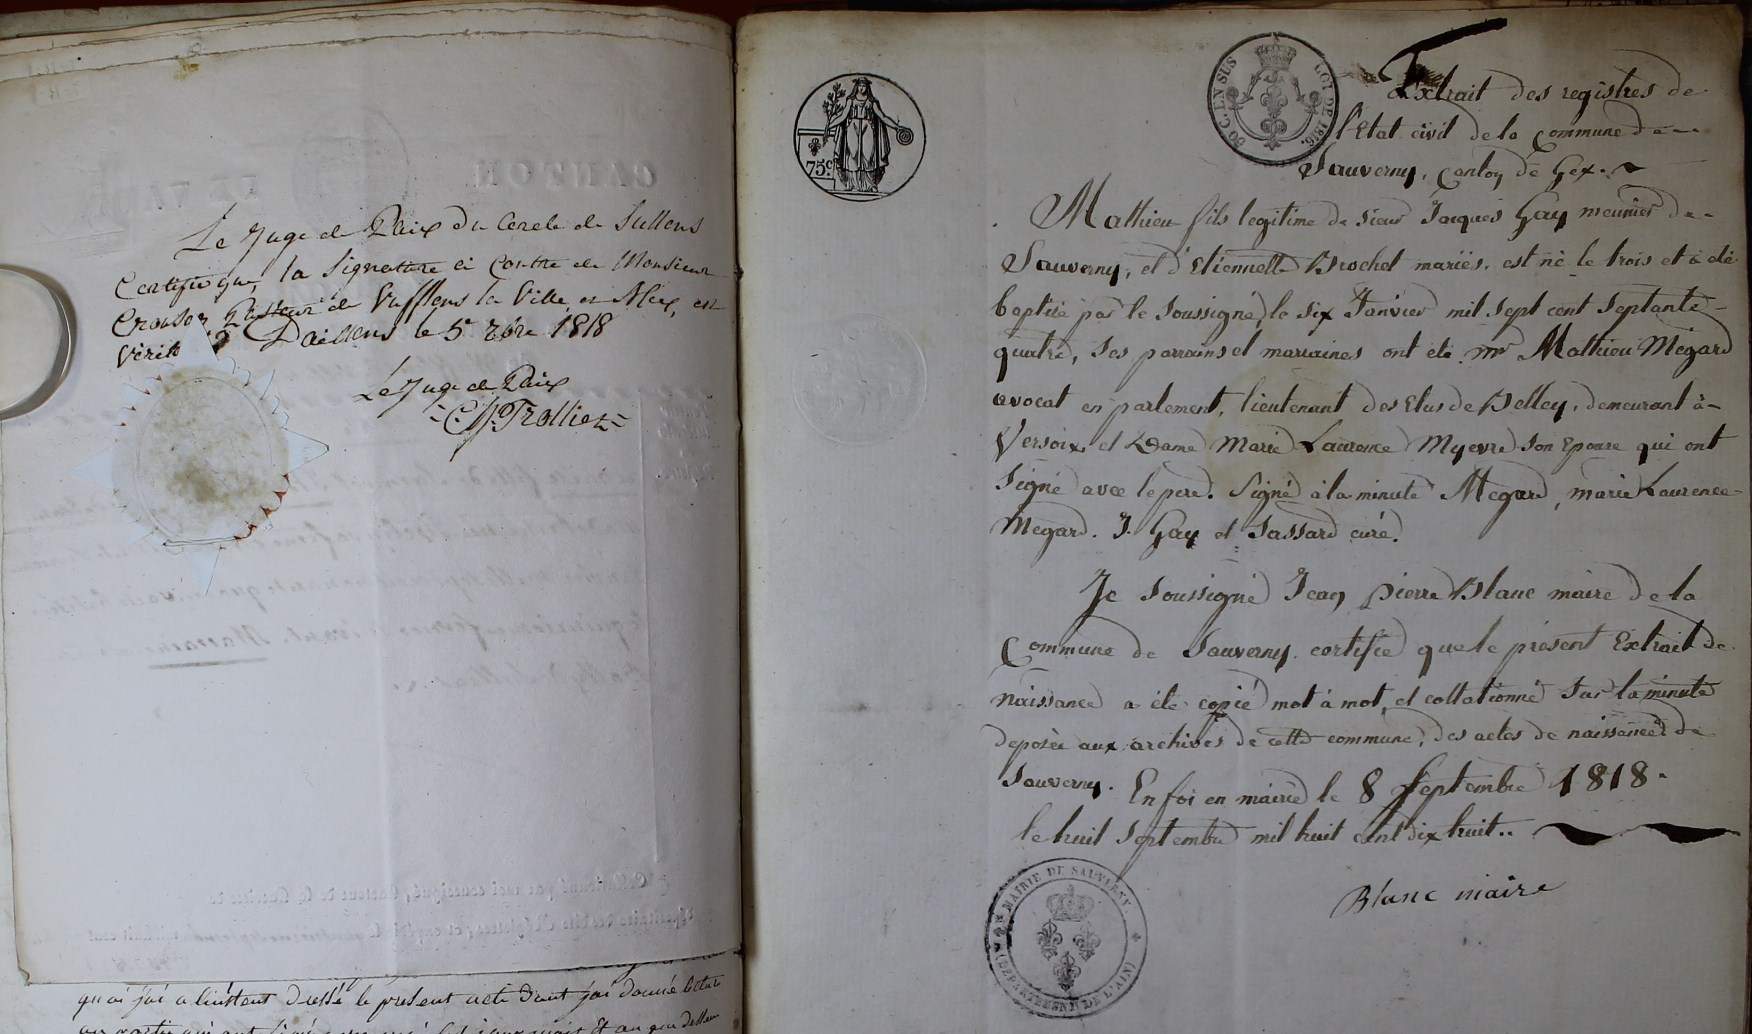 Le Juge de Paix du Cercle de Sullens
Certifie que la Signature ci Contre de Monsieur
Crousaz, Pasteur de Vufflens la Ville et Mex, est
Vérité
Daillens le 5e 7bre 1818
Le Juge de Paix
C. Trolliet
qu'ai fai à l'instant dressé le present acte dont j'ai donné lecture
75 c.
50 C. EN SUS
LOI DE 1816.
Extrait des registres de
l'Etat civil de la Commune de
Sauverny, Canton de Gex.
Mathieu fils legitime de sieur Jacques Gay meunier de
Sauverny, et d'Etiennette Brochet mariés. est né le trois et a été
baptisé par le Soussigné, le six Janvier mil sept cent septante-
quatre, Ses parrains et marraines ont été. mr Mathieu Megard
avocat en parlement, lieutenant des Elus de Belley, demeurant à
Versoix, et Dame Marie Laurence Myevre son Epouse qui ont
Signé avec le pere. Signé à la minute Megard, marie Laurence
Megard. J. Gay et Jassard curé.
Je Soussigné Jean Pierre Blanc maire de la
Commune de Sauverny. certifie que le présent Extrait de
naissance a été copié mot à mot, et collationné Sur la minute
deposée aux archives de cette commune, des actes de naissance de
Sauverny. En foi en mairie le 8 Septembre 1818.
le huit Septembre mil huit cent dix huit..
Blanc maire
MAIRIE DE SAUVERNY.
(DEPARTEMENT DE L'AIN)